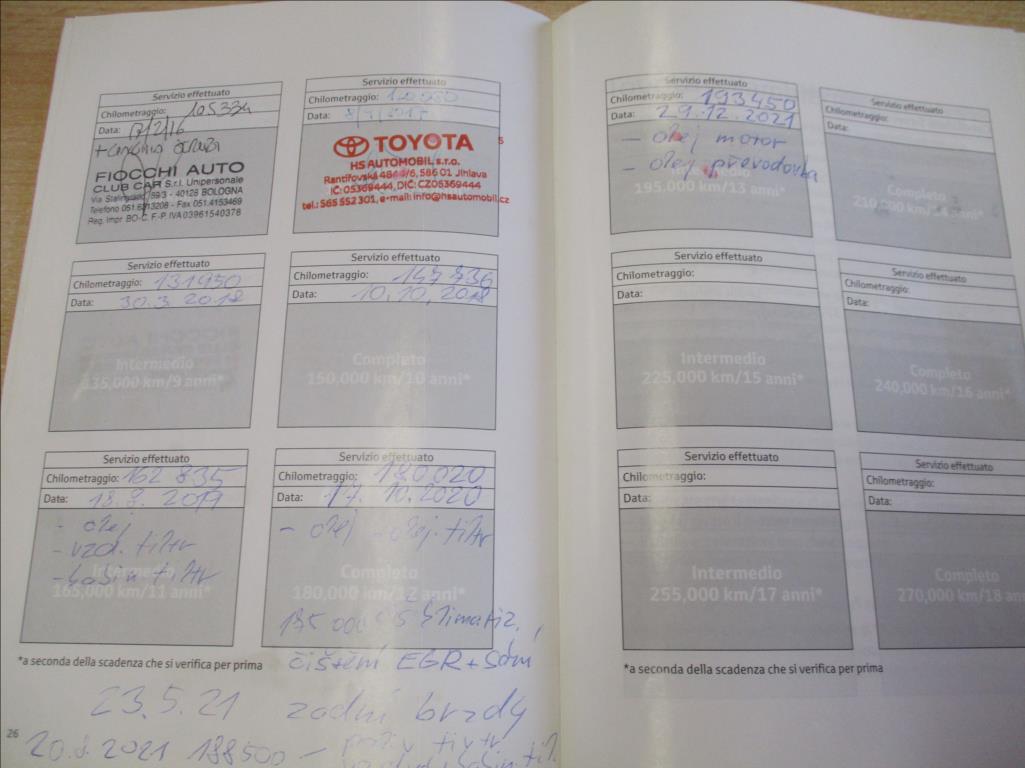 Servizio effettuato
Chilometraggio: 105334
Data: 17/2/16
FIOCCHI AUTO
CLUB CAR S.r.l. Unipersonale
Via Stalingrado 59/3 - 40128 BOLOGNA
Telefono 051.6313208 - Fax 051.4153469
Reg. Impr. BO-C.F.-P.IVA 03961540378
Servizio effettuato
Chilometraggio:
Data:
TOYOTA
HS AUTOMOBIL s.r.o.
Rantířovská 4844/6, 586 01 Jihlava
IČ: 05369444, DIČ: CZ05369444
tel.: 565 552 301, e-mail: info@hsautomobil.cz
Servizio effettuato
Chilometraggio: 131950
Data: 30.3 2018
Intermedio
135,000 km/9 anni*
Servizio effettuato
Chilometraggio: 147 836
Data: 10.10, 2018
Completo
150,000 km/10 anni*
Servizio effettuato
Chilometraggio: 162 835
Data: 2019
- olej
- vzd. filtr
- kabin filtr
Intermedio
165,000 km/11 anni*
Servizio effettuato
Chilometraggio: 180.020
Data: 17. 10.2020
- olej - olej. filtr
Completo
180,000 km/12 anni*
175 000 klimatiz,
čištění EGR + sání
*a seconda della scadenza che si verifica per prima
23.5.21 zadní brzdy
20.8.2021 188500 -
26
Servizio effettuato
Chilometraggio: 193450
Data: 29.12.2021
- olej motor
- olej převodovka
195,000 km/13 anni*
Servizio effettuato
Chilometraggio:
Data:
Completo
210,000 km/14 anni*
Servizio effettuato
Chilometraggio:
Data:
Intermedio
225,000 km/15 anni*
Servizio effettuato
Chilometraggio:
Data:
Completo
240,000 km/16 anni*
Servizio effettuato
Chilometraggio:
Data:
Intermedio
255,000 km/17 anni*
Servizio effettuato
Chilometraggio:
Data:
Completo
270,000 km/18 anni
*a seconda della scadenza che si verifica per prima